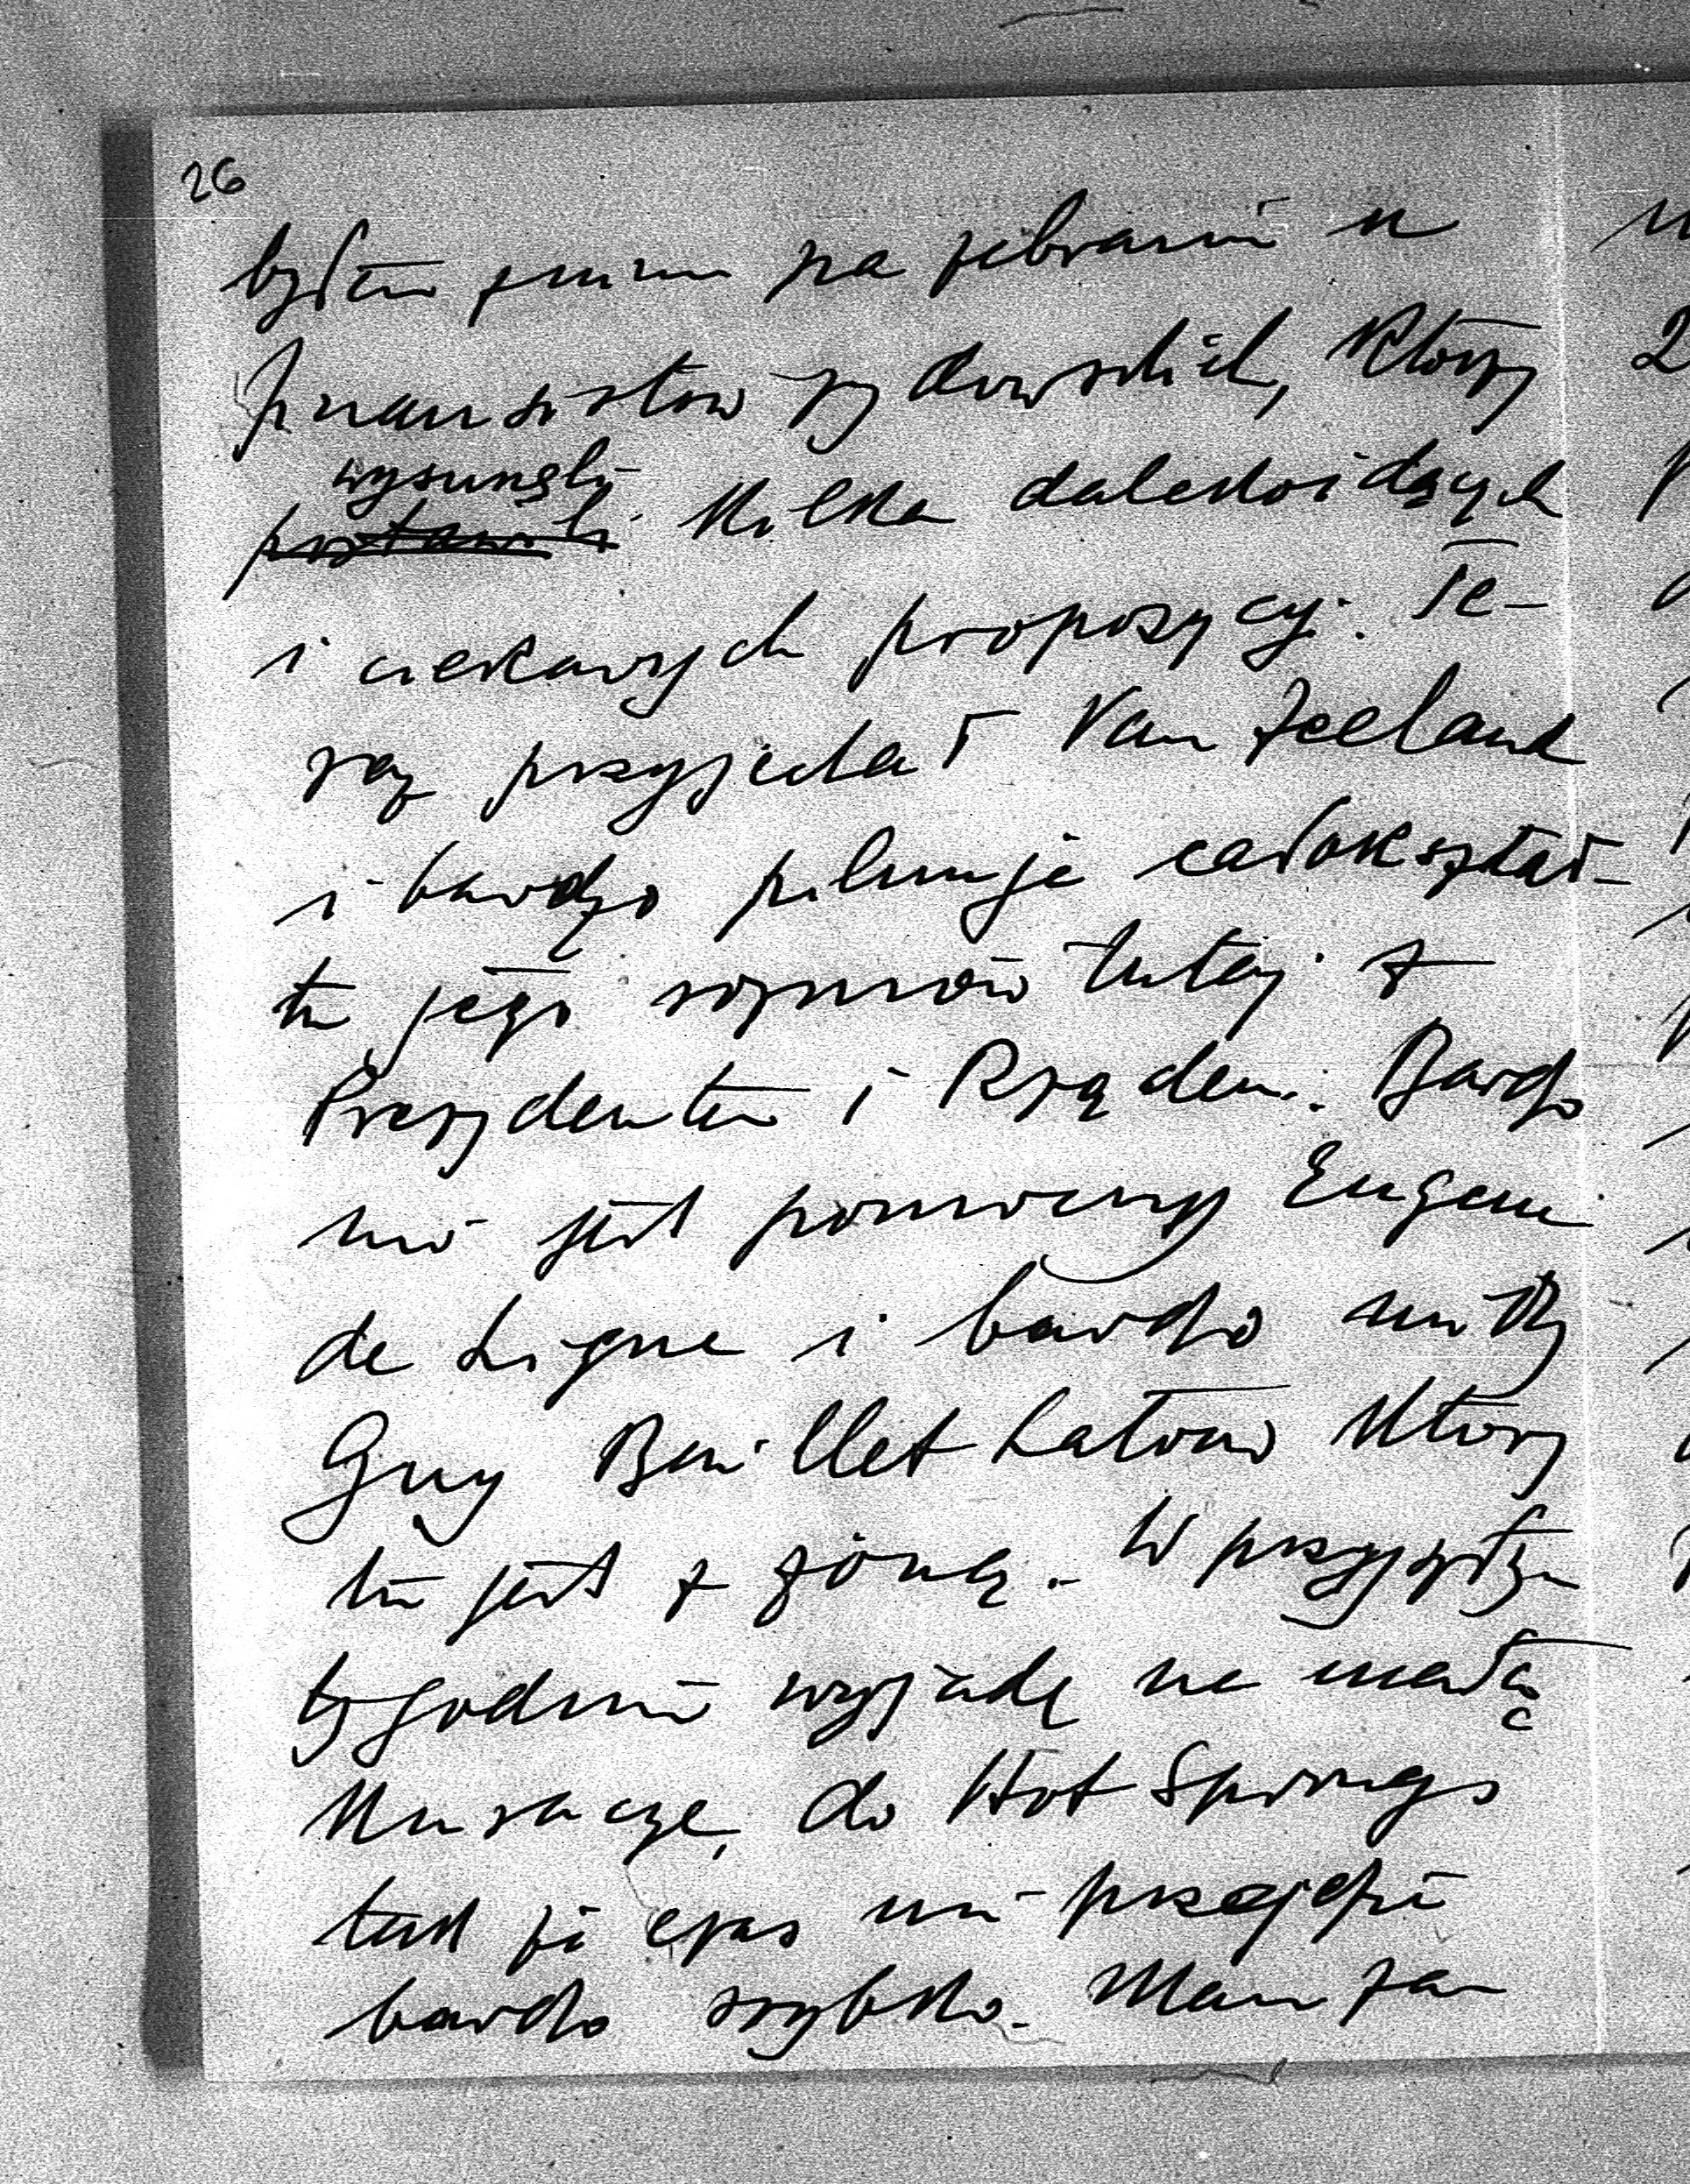 26
byłem z nim na zebraniu u
finansistów żydowskich, którzy
wysunęli
postawili kilka dalekoidących
i ciekawych propozycji. Te-
raz przyjechał Van Zeeland
i bardzo pilnuję całokształ-
tu jego rozmów tutaj z
Prezydentem i Rządem. Bardzo
mi jest pomocny Eugene
de Ligne i bardzo miły
Guy Baillet Latour który
tu jest z żoną. W przyszłym
tygodniu wyjadę na małą
kurację, do Hot Springs
tak że czas mi przejdzie
bardzo szybko. Mam za